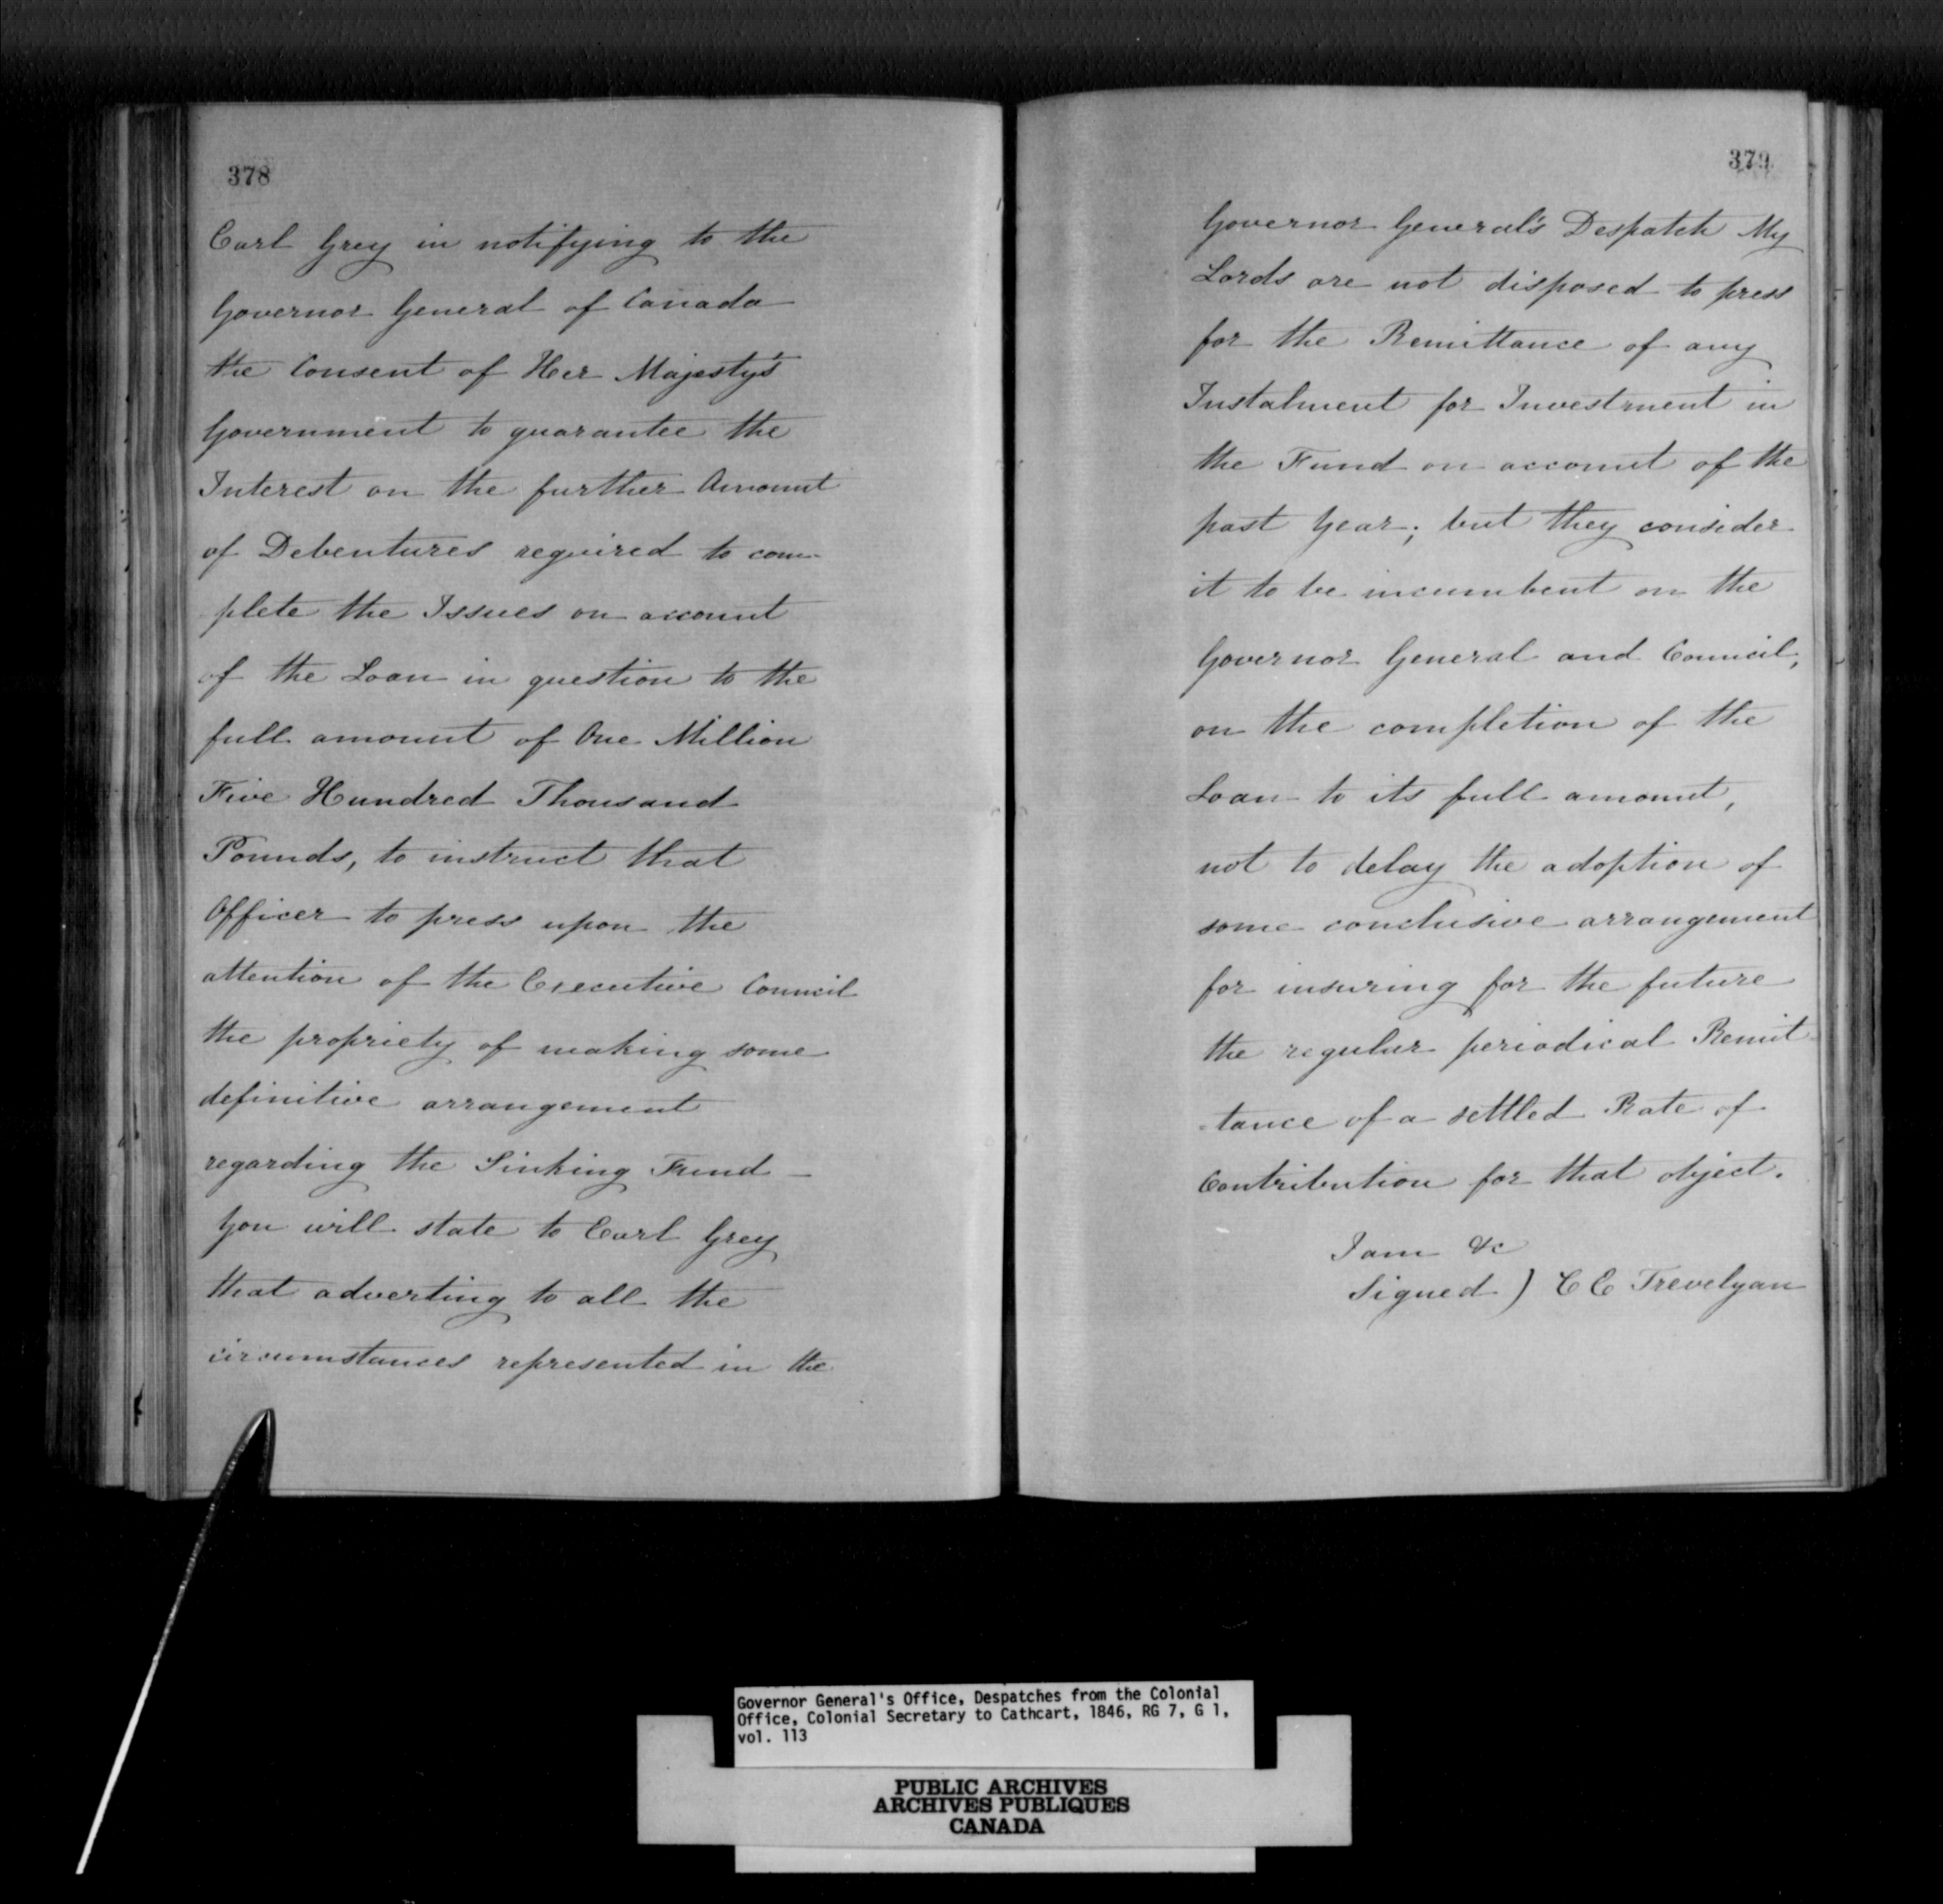 378
Earl Grey in notifying to the
Governor General of Canada
the Consent of Her Majesty's
Government to guarantee the
Interest on the further Amount
of Debentures required to com-
plete the Issues on account
of the Loan in question to the
full amount of One Million
Five Hundred Thousand
Pounds, to instruct that
Officer to press upon the
attention of the Executive Council
the propriety of making some
definitive arrangement
regarding the Sinking Fund —
You will state to Earl Grey
that adverting to all the
circumstances represented in the
379
Governor General's Despatch My
Lords are not disposed to press
for the Remittance of any
Instalment for Investment in
the Fund on account of the
past Year; but they consider
it to be incumbent on the
Governor General and Council,
on the completion of the
Loan to its full amount,
not to delay the adoption of
some conclusive arrangement
for insuring for the future
the regular periodical Remit-
-tance of a settled Rate of
Contribution for that object.
I am &c
Signed) C E Trevelyan
Governor General's Office, Despatches from the Colonial
Office, Colonial Secretary to Cathcart, 1846, RG 7, G 1,
vol. 113
PUBLIC ARCHIVES
ARCHIVES PUBLIQUES
CANADA